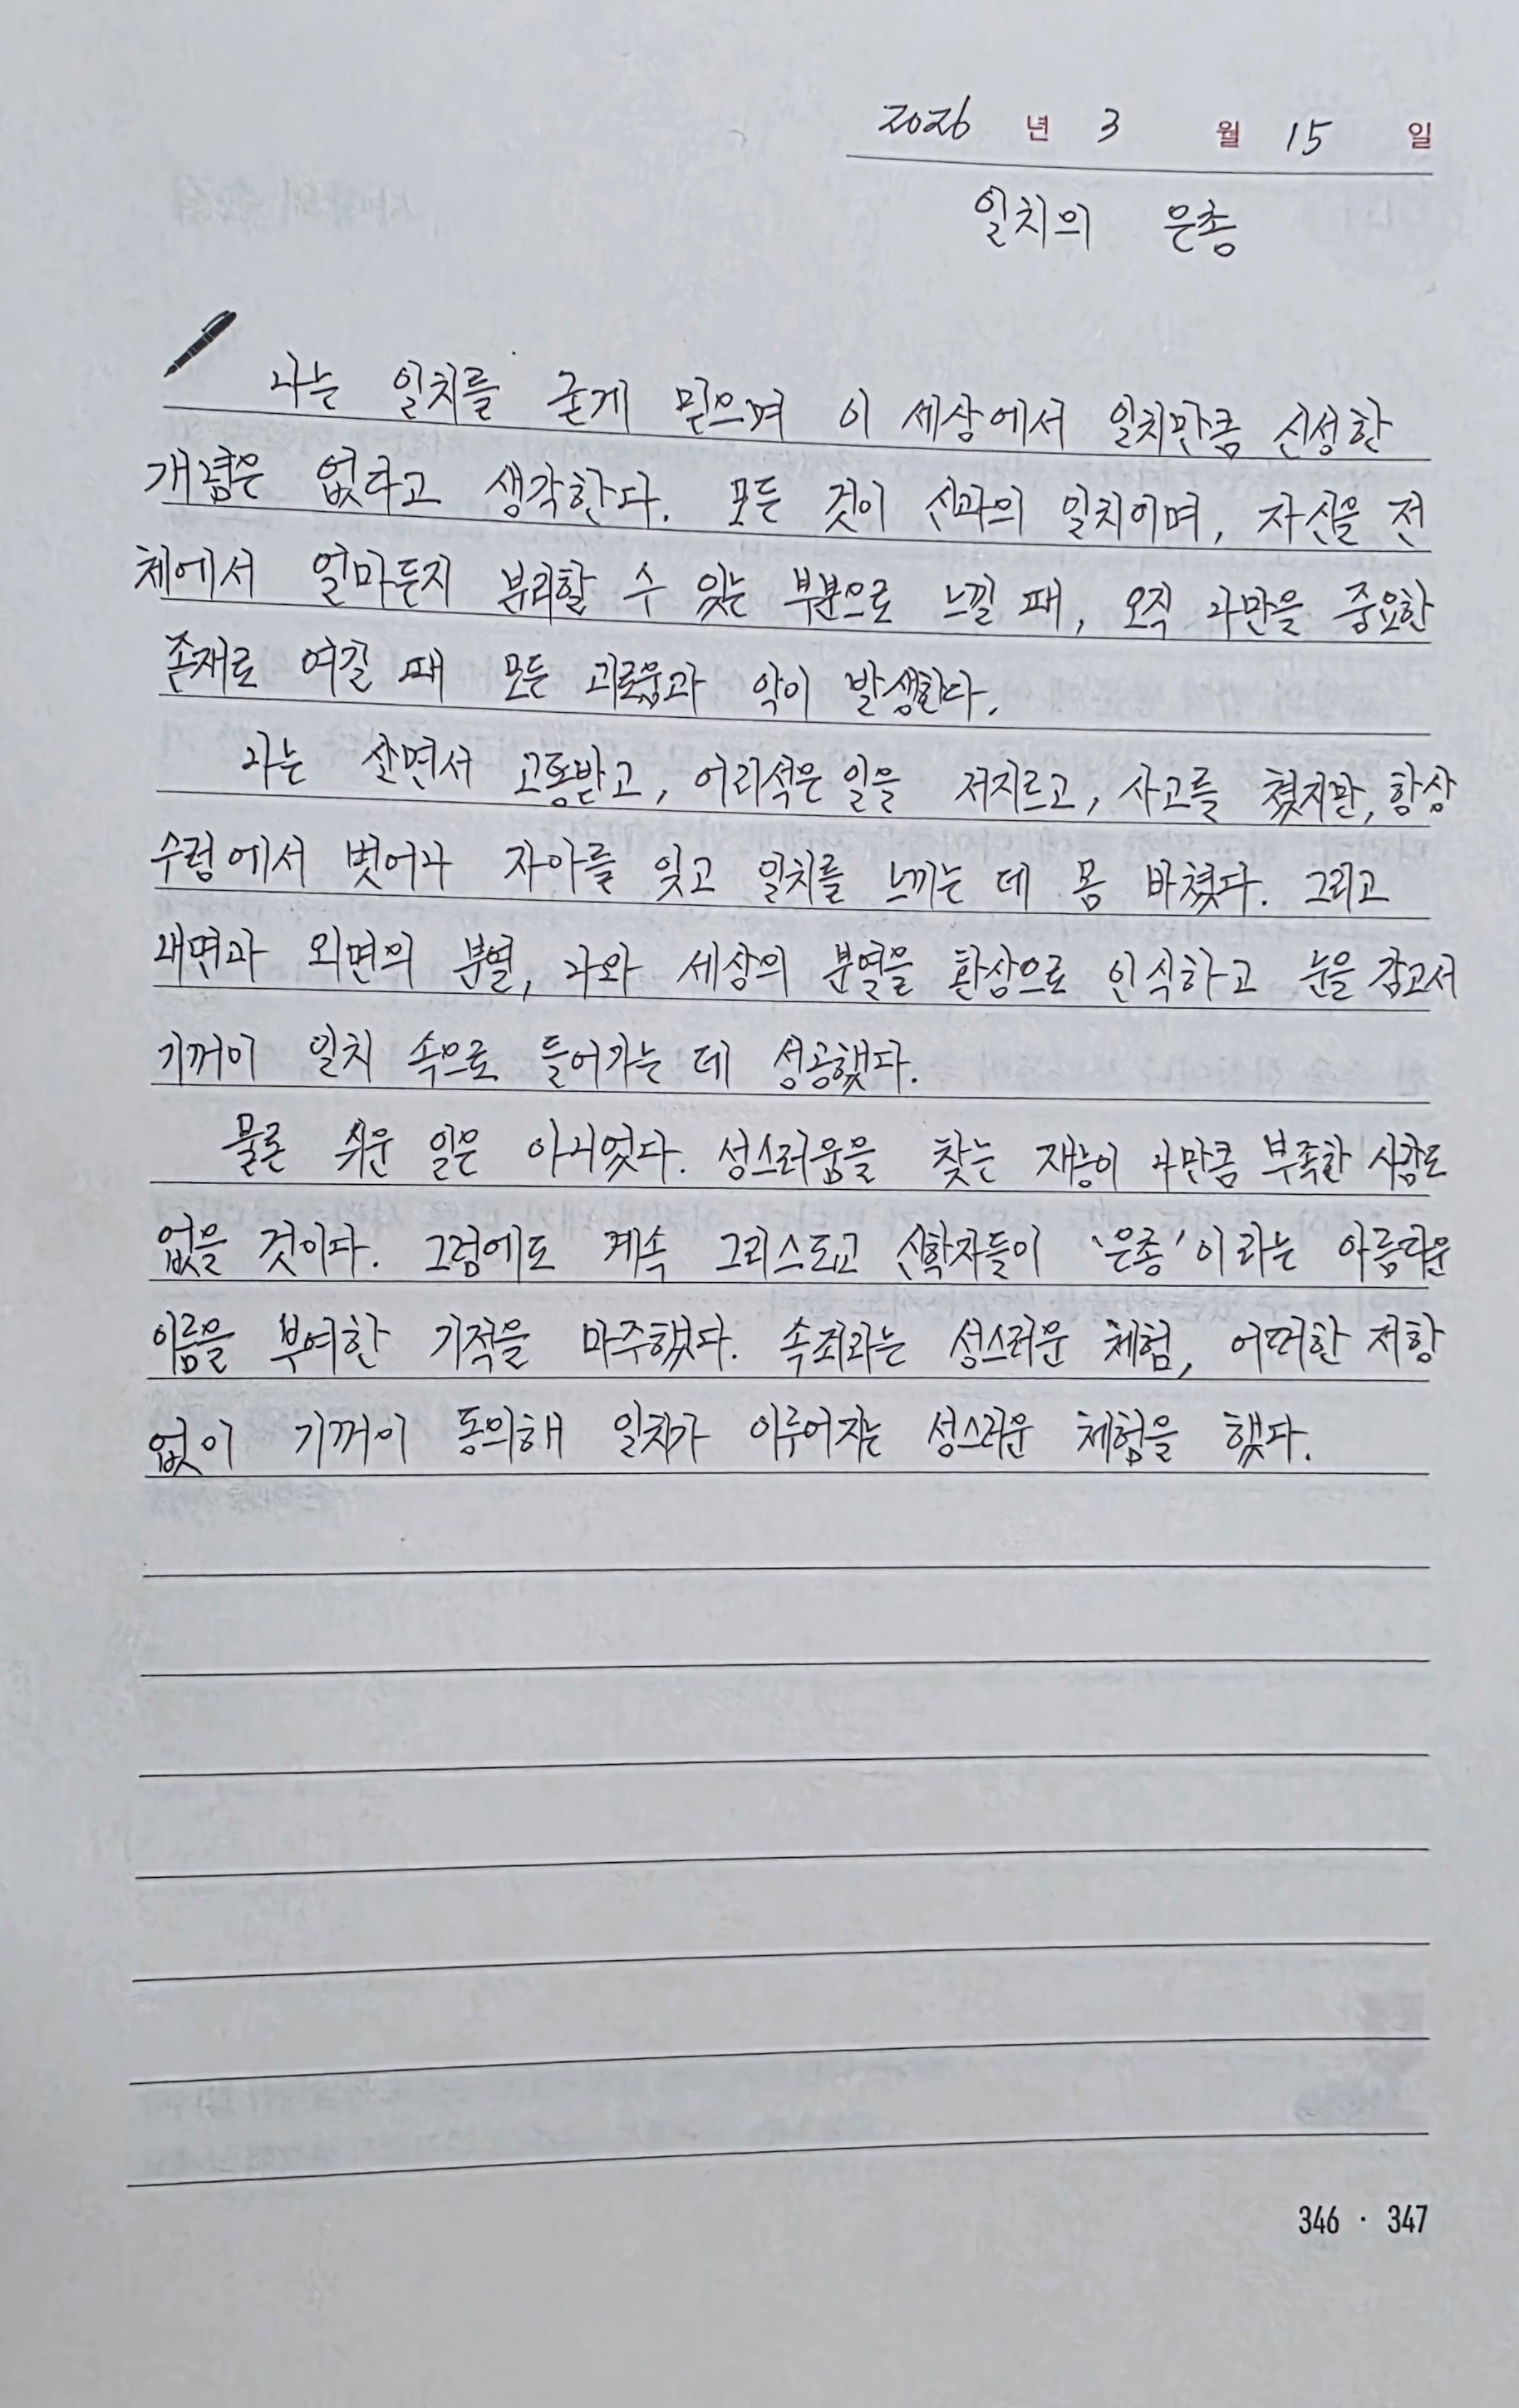 2026 년 3 월 15 일
일치의 은총
나는 일치를 굳게 믿으며 이 세상에서 일치만큼 신성한
개념은 없다고 생각한다. 모든 것이 신과의 일치이며, 자신을 전
체에서 얼마든지 분리할 수 있는 부분으로 느낄 때, 오직 나만을 중요한
존재로 여길 때 모든 괴로움과 악이 발생한다.
나는 살면서 고통받고, 어리석은 일을 저지르고, 사고를 쳤지만, 항상
수렁에서 벗어나 자아를 잊고 일치를 느끼는 데 몸 바쳤다. 그리고
내면과 외면의 분열, 나와 세상의 분열을 환상으로 인식하고 눈을 감고서
기꺼이 일치 속으로 들어가는 데 성공했다.
물론 쉬운 일은 아니었다. 성스러움을 찾는 재능이 나만큼 부족한 사람도
없을 것이다. 그럼에도 계속 그리스도교 신학자들이 '은총'이라는 아름다운
이름을 부여한 기적을 마주했다. 속죄라는 성스러운 체험, 어떠한 저항
없이 기꺼이 동의해 일치가 이루어지는 성스러운 체험을 했다.
346 · 347